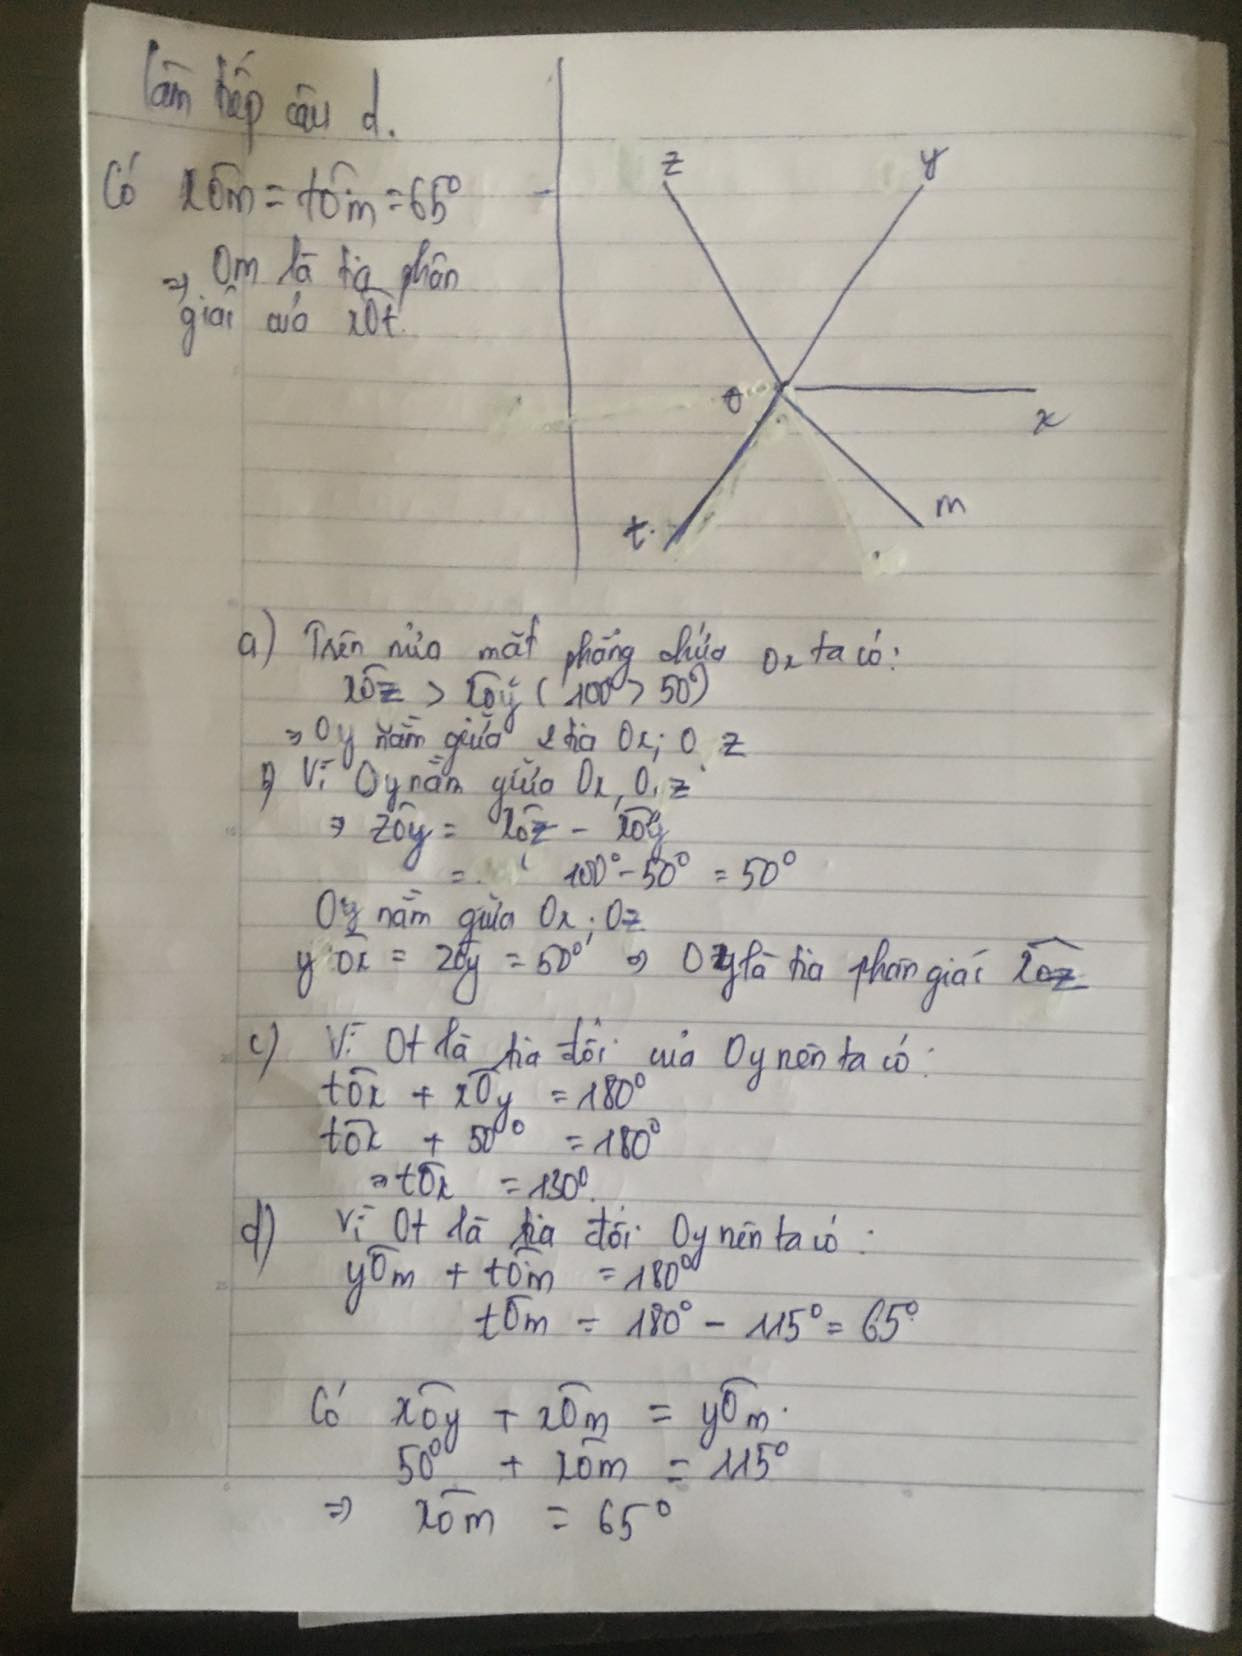 Làm tiếp câu d.
Có xOm = tOm = 65°
⇒ Om là tia phân
giác của xOt.
z
y
O
x
t
m
a) Trên nửa mặt phẳng chứa Ox ta có:
xOz > xOy (100° > 50°)
⇒ Oy nằm giữa 2 tia Ox; Oz
b) Vì Oy nằm giữa Ox, Oz
⇒ zOy = xOz - xOy
= 100° - 50° = 50°
Oy nằm giữa Ox; Oz
yOx = zOy = 50° ⇒ Oy là tia phân giác xOz
c) Vì Ot là tia đối của Oy nên ta có:
tOx + xOy = 180°
tOx + 50° = 180°
⇒ tOx = 130°.
d) Vì Ot là tia đối Oy nên ta có:
yOm + tOm = 180°
tOm = 180° - 115° = 65°
Có xOy + xOm = yOm.
50° + xOm = 115°
⇒ xOm = 65°